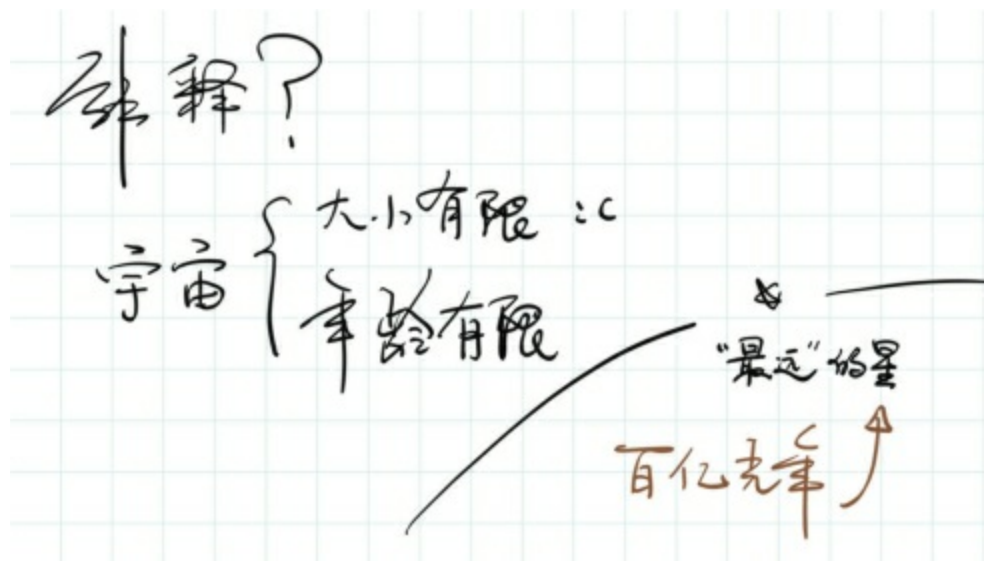 解释?
宇宙
大小有限 :c
年龄有限
"最远"的星
百亿光年